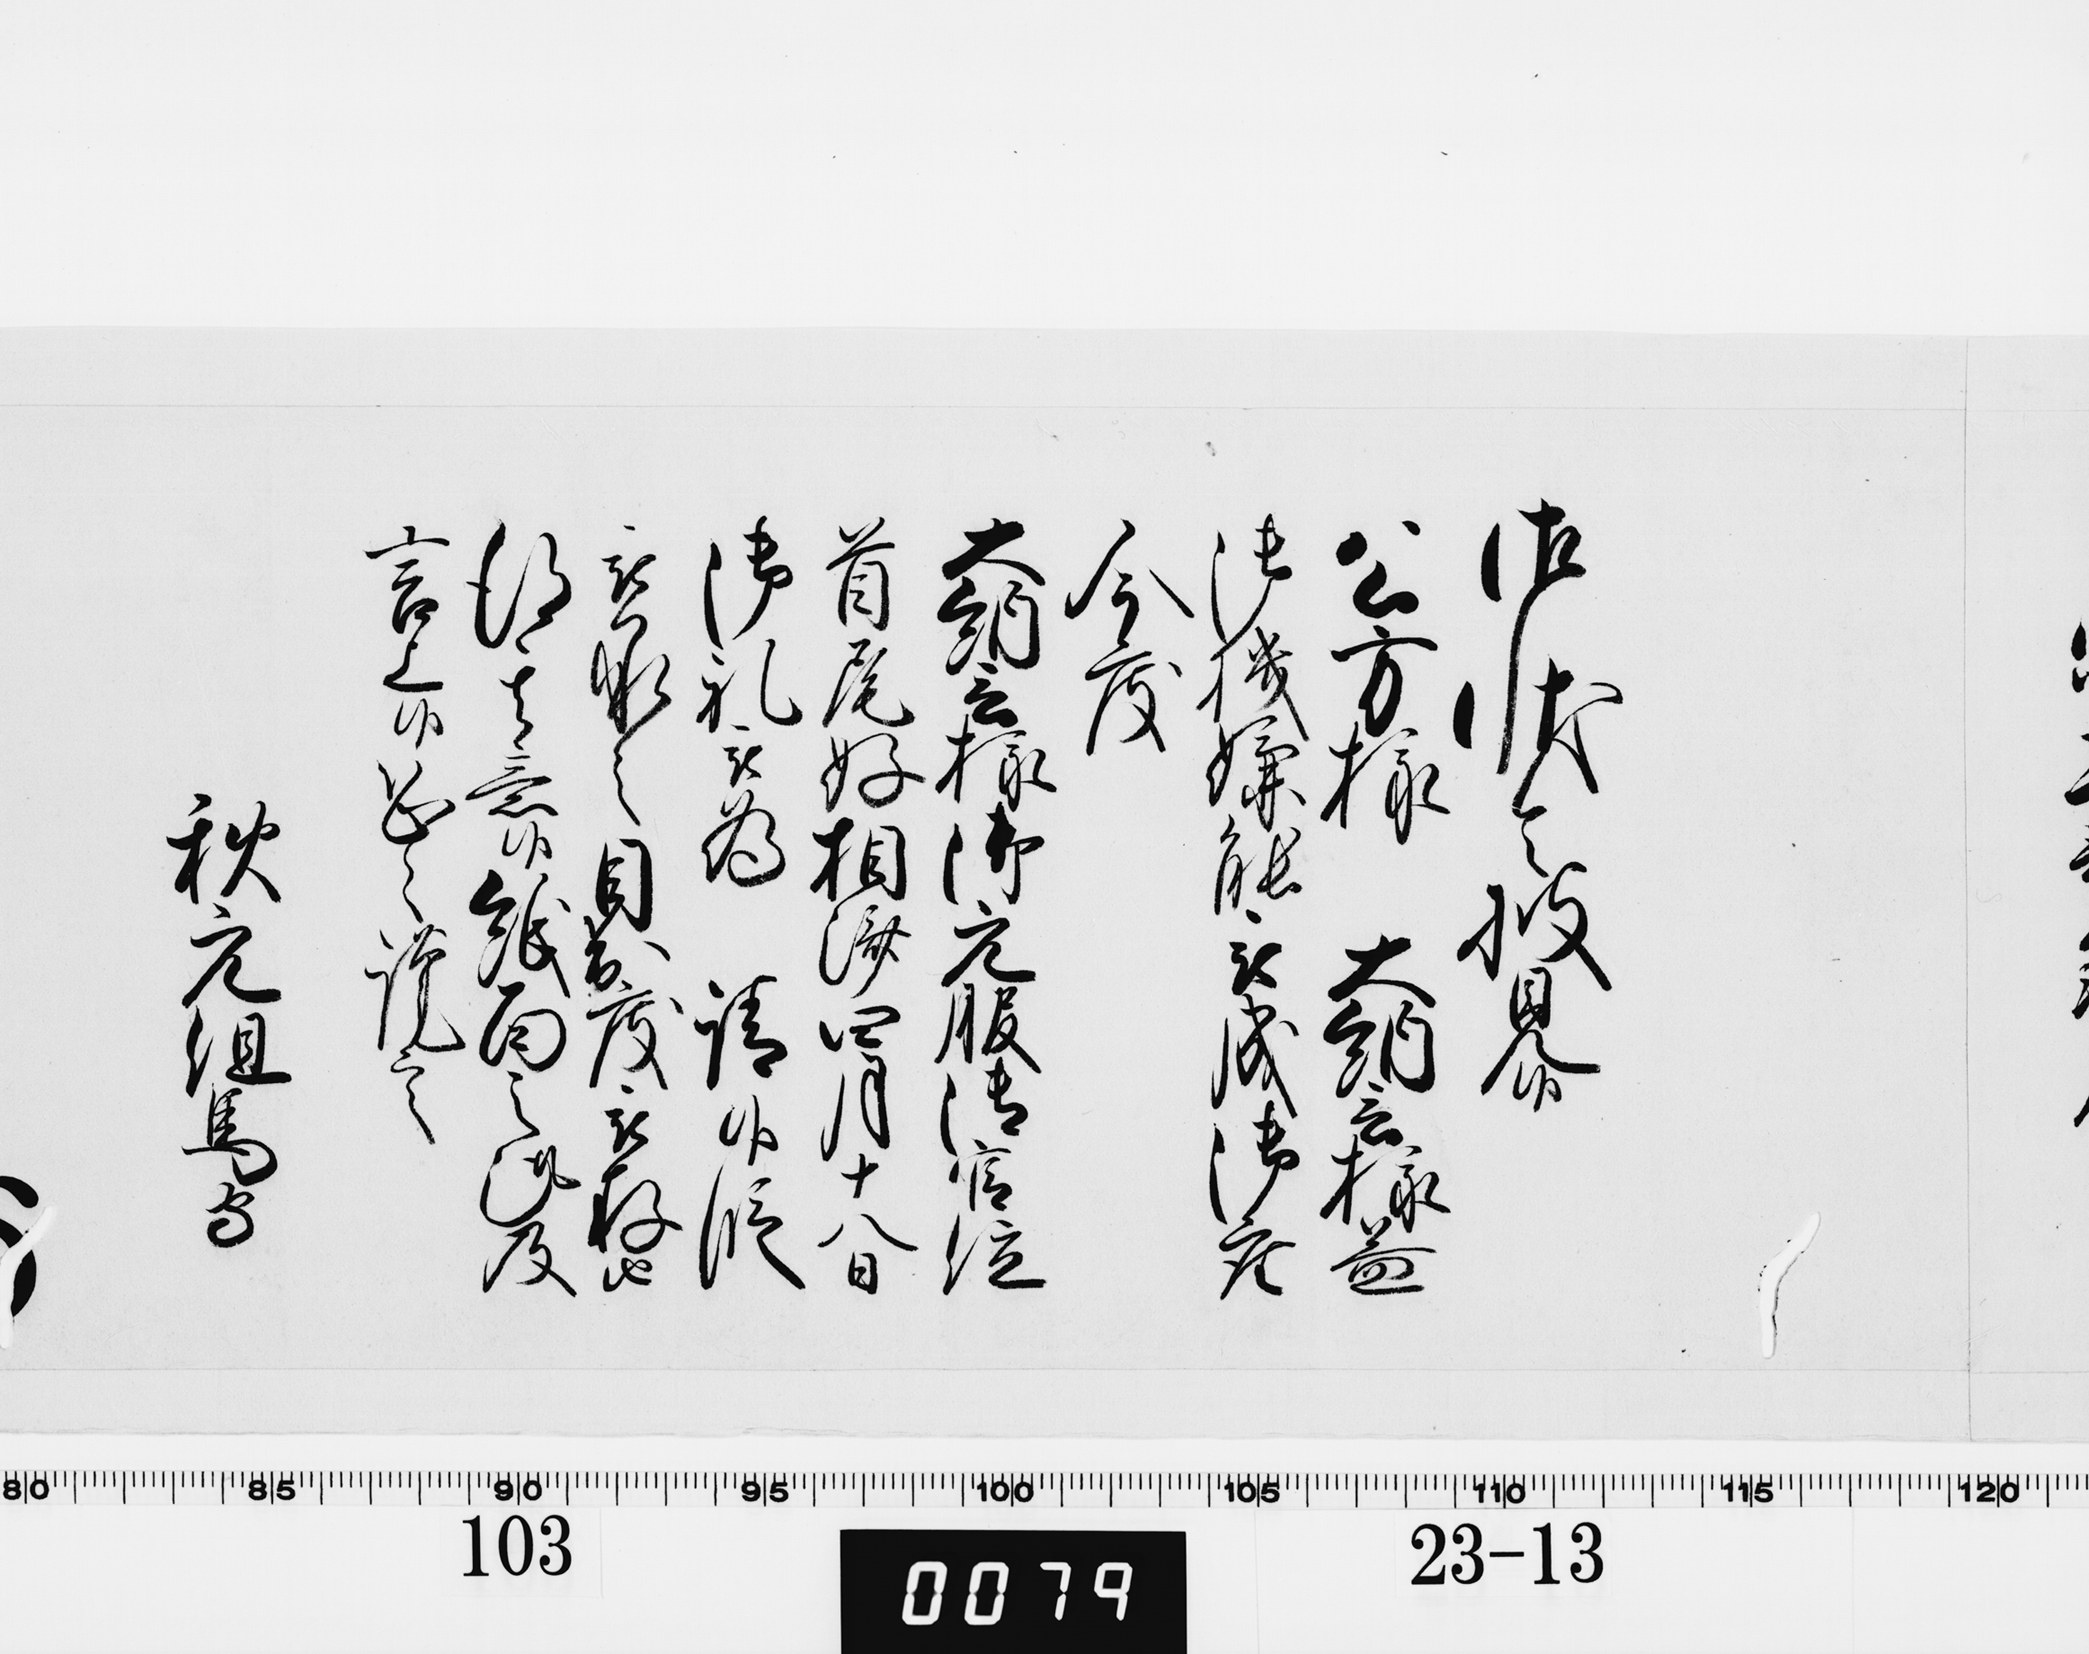 御状令披見候
公方様 大納言様益
御機嫌能被成御座
今度
大納言様御元服御官位
首尾好相済四月十八日
御礼被為 請候段
被承之目出度被存
得其意候紙面之趣及
言上候恐々謹言
秋元但馬守
80 85 90 95 100 105 110 115 120
103
23-13
0079